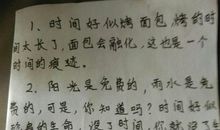 1、时间好似烤面包,烤的时
间太长了,面包会融化,这也是一个
时间的痕迹。
2、阳光是免费的,雨水是免
费的,可是,你知道吗?时间好似
的生命,没了时间,你就没了